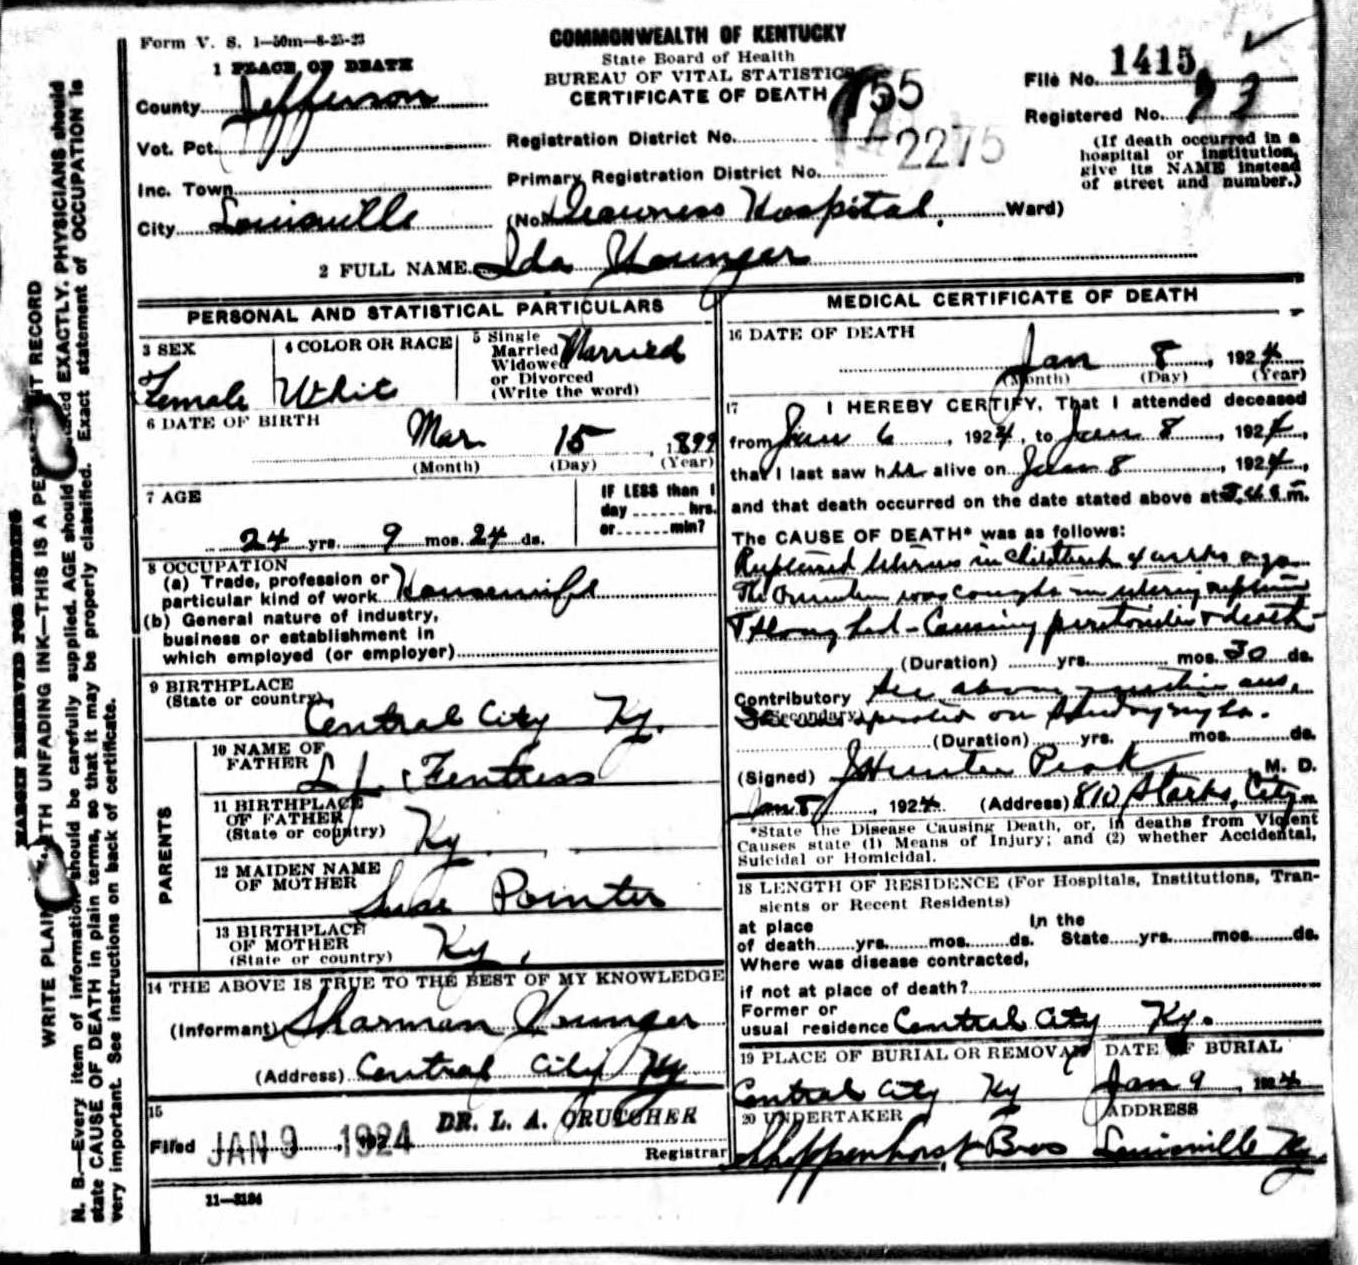 Form V. S. 1—50m—8-25-23
COMMONWEALTH OF KENTUCKY
State Board of Health
BUREAU OF VITAL STATISTICS
CERTIFICATE OF DEATH
File No. 1415
Registered No.
(If death occurred in a hospital or institution, give its NAME instead of street and number.)
1 PLACE OF DEATH
County Jefferson
Vot. Pct.
Inc. Town
City Louisville
Registration District No. 755
Primary Registration District No. 2275
(No. Deaconess Hospital. Ward)
2 FULL NAME Ida Younger
PERSONAL AND STATISTICAL PARTICULARS
3 SEX Female
4 COLOR OR RACE White
5 Single Married Widowed or Divorced (Write the word) Married
6 DATE OF BIRTH Mar. 15, 1899
(Month) (Day) (Year)
7 AGE
24 yrs. 9 mos. 24 ds.
IF LESS than 1 day hrs. or min?
8 OCCUPATION
(a) Trade, profession or particular kind of work Housewife
(b) General nature of industry, business or establishment in which employed (or employer)
9 BIRTHPLACE
(State or country)
Central City Ky.
PARENTS
10 NAME OF FATHER L J Fentress
11 BIRTHPLACE OF FATHER (State or country) Ky
12 MAIDEN NAME OF MOTHER Susie Pointer
13 BIRTHPLACE OF MOTHER (State or country) Ky.
14 THE ABOVE IS TRUE TO THE BEST OF MY KNOWLEDGE
(Informant) Sharman Younger
(Address) Central City Ky
15
Filed JAN 9 1924 DR. L. A. CRUTCHER
Registrar
11—3184
MEDICAL CERTIFICATE OF DEATH
16 DATE OF DEATH
Jan 8, 1924
(Month) (Day) (Year)
17 I HEREBY CERTIFY, That I attended deceased
from Jan 6, 1924, to Jan 8, 1924,
that I last saw her alive on Jan 8, 1924,
and that death occurred on the date stated above at m.
The CAUSE OF DEATH* was as follows:
Ruptured Uterus in Childbirth 4 weeks ago
The Omentum was caught in uterine rupture
Causing peritonitis & death
(Duration) yrs. mos. 30 ds.
Contributory See above
(Secondary) operated on
(Duration) yrs. mos. ds.
(Signed) J Hunter Peak, M. D.
Jan 8, 1924 (Address) 810 Starks, City
*State the Disease Causing Death, or, in deaths from Violent
Causes state (1) Means of Injury; and (2) whether Accidental,
Suicidal or Homicidal.
18 LENGTH OF RESIDENCE (For Hospitals, Institutions, Transients or Recent Residents)
at place of death yrs. mos. ds. In the State yrs. mos. ds.
Where was disease contracted,
if not at place of death?
Former or usual residence Central City Ky.
19 PLACE OF BURIAL OR REMOVAL
Central City Ky
DATE OF BURIAL
Jan 9, 1924
20 UNDERTAKER
Shoppenhorst Bros
ADDRESS
Louisville Ky.
MARGIN RESERVED FOR BINDING
WRITE PLAINLY, WITH UNFADING INK—THIS IS A PERMANENT RECORD
N. B.—Every item of information should be carefully supplied. AGE should be stated EXACTLY. PHYSICIANS should
state CAUSE OF DEATH in plain terms, so that it may be properly classified. Exact statement of OCCUPATION is
very important. See instructions on back of certificate.